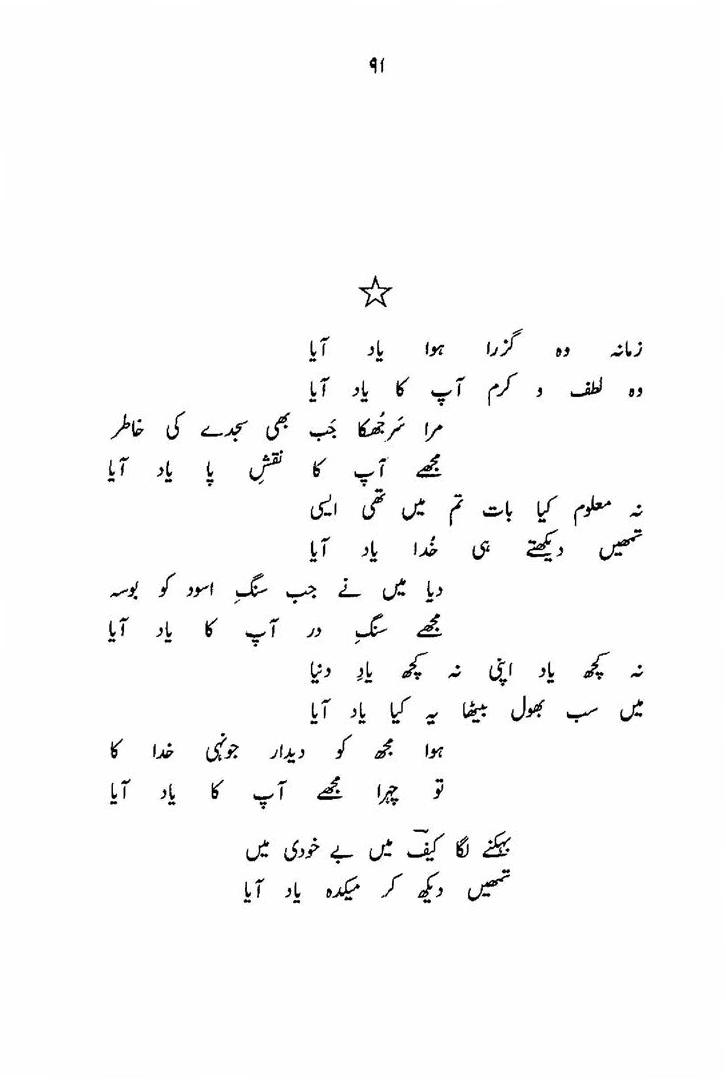 ۹۱
زمانہ وہ گزرا ہوا یاد آیا
وہ لطف و کرم آپ کا یاد آیا
مرا سَر جُھکا جَب بھی سجدے کی خاطر
مجھے آپ کا نقشِ پا یاد آیا
نہ معلوم کیا بات تم میں تھی ایسی
تمھیں دیکھتے ہی خُدا یاد آیا
دیا میں نے جب سنگِ اسود کو بوسہ
مجھے سنگِ در آپ کا یاد آیا
نہ کچھ یاد اپنی نہ کچھ یادِ دنیا
میں سب بھول بیٹھا یہ کیا یاد آیا
ہوا مجھ کو دیدار جونہی خدا کا
تو چہرا مجھے آپ کا یاد آیا
بہکنے لگا کیفؔ میں بے خودی میں
تمھیں دیکھ کر میکدہ یاد آیا